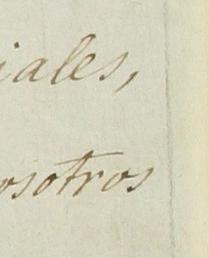 iales,
osotros